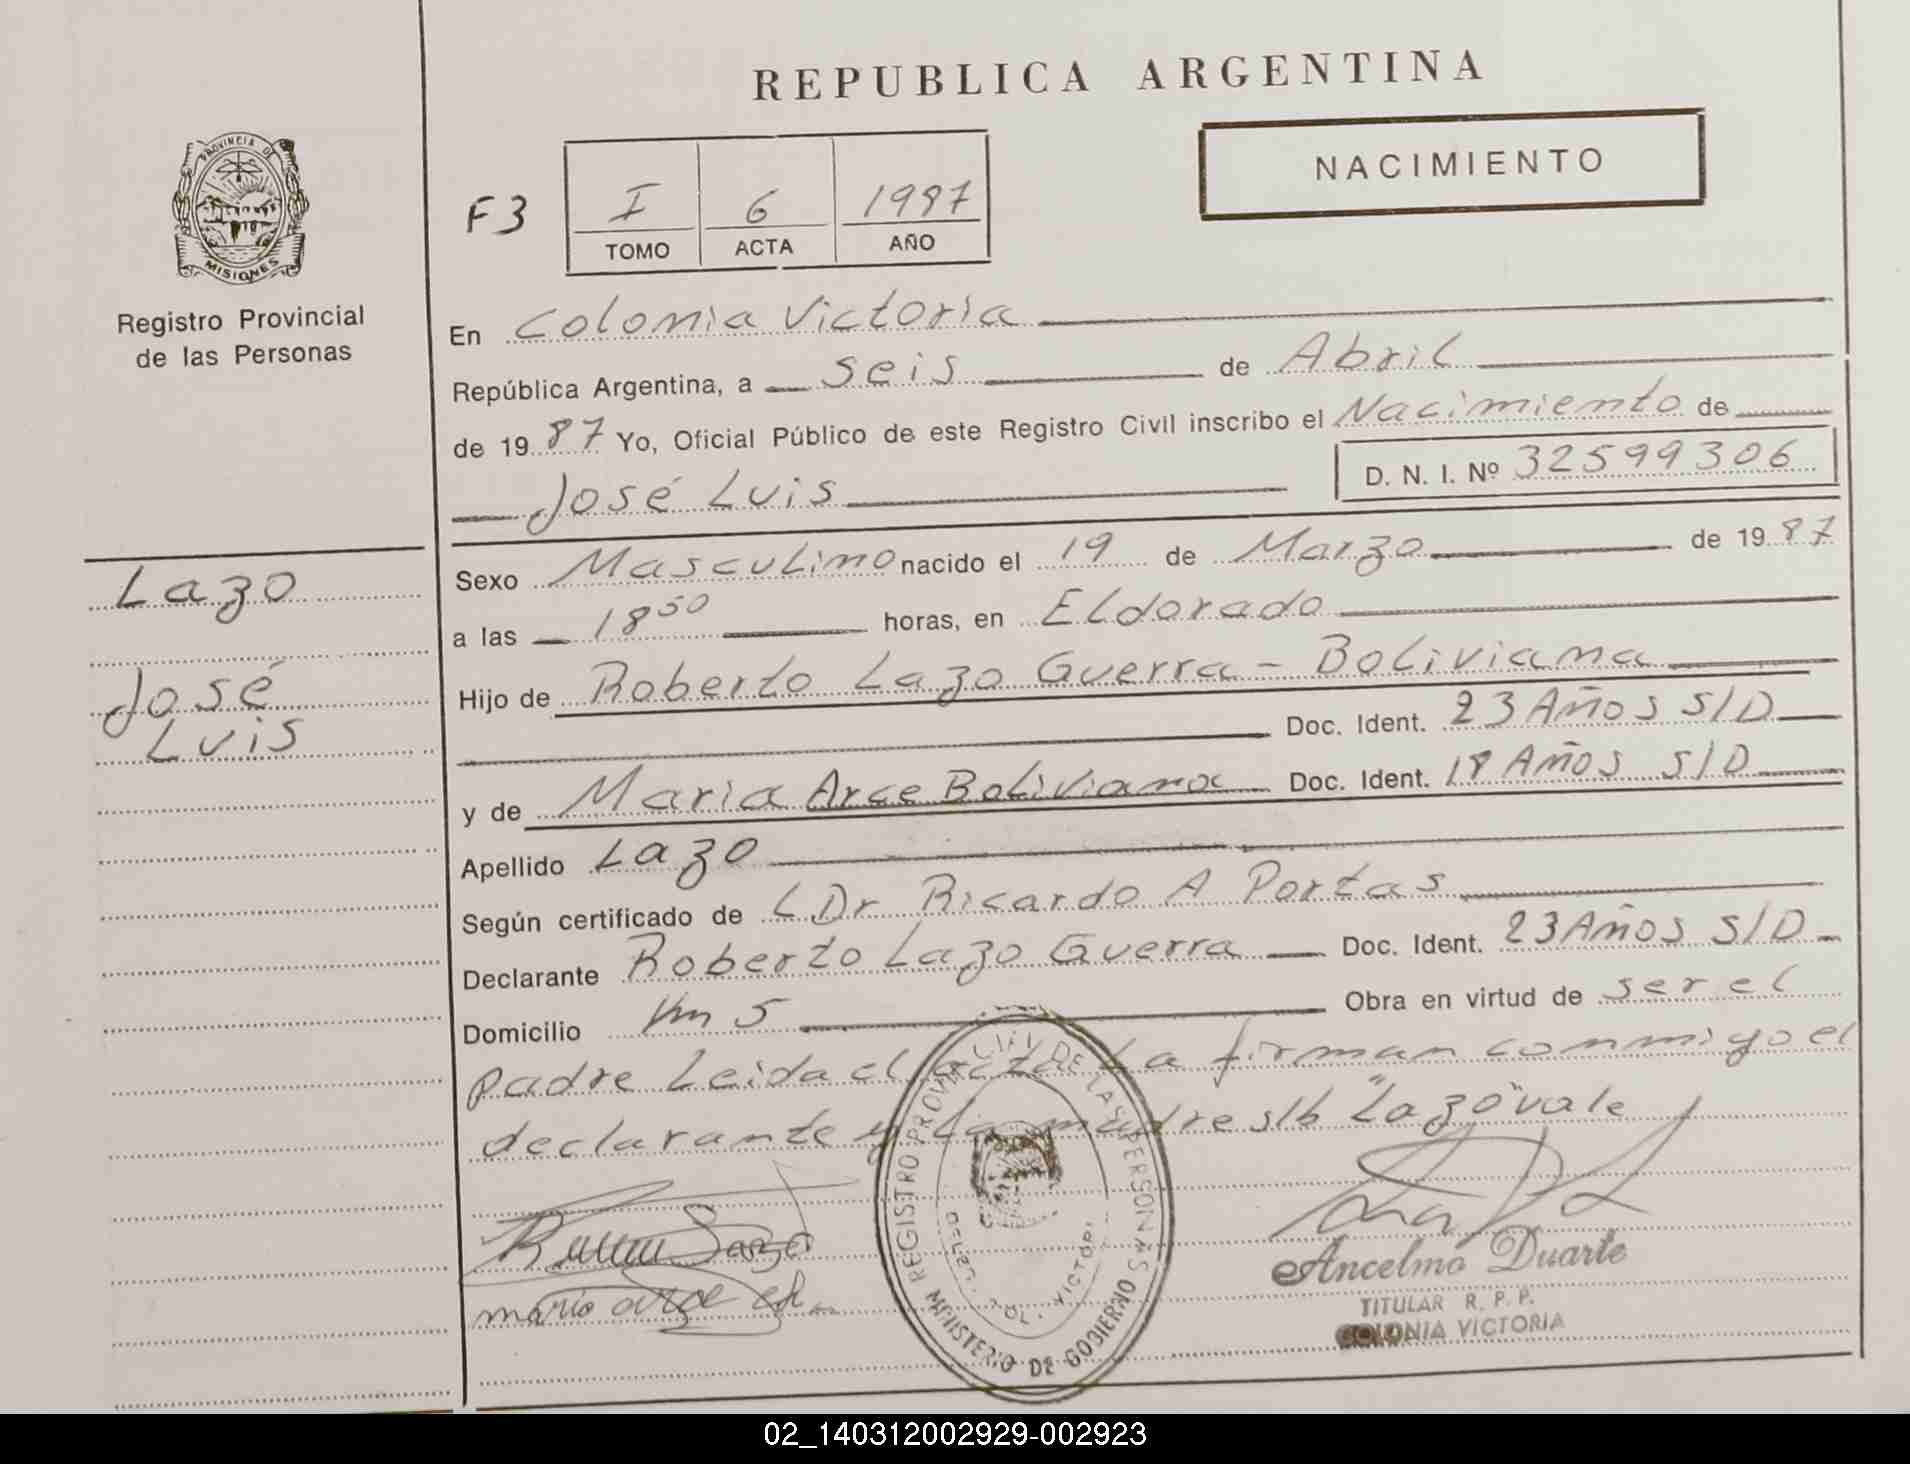 REPUBLICA ARGENTINA
NACIMIENTO
F3
I 6 1987
TOMO ACTA AÑO
PROVINCIA DE
MISIONES
Registro Provincial
de las Personas
En Colonia Victoria
República Argentina, a seis de Abril
de 19 87 Yo, Oficial Público de este Registro Civil inscribo el Nacimiento de
José Luis D. N. I. Nº 32599306
Lazo
José
Luis
Sexo Masculino nacido el 19 de Marzo de 19 87
a las 18 50 horas, en Eldorado
Hijo de Roberto Lazo Guerra - Boliviana
Doc. Ident. 23 Años S/D
y de Maria Arce Boliviana Doc. Ident. 18 Años S/D
Apellido Lazo
Según certificado de L Dr Ricardo A Portas
Declarante Roberto Lazo Guerra Doc. Ident. 23 Años S/D
Domicilio Km 5 Obra en virtud de ser el
padre Leida el acta La firman conmigo el
declarante y La madre s/b "Lazo" vale
REGISTRO PROVINCIAL DE LAS PERSONAS
MINISTERIO DE GOBIERNO
maria arce
Ancelmo Duarte
TITULAR R. P. P.
COLONIA VICTORIA
02_140312002929-002923